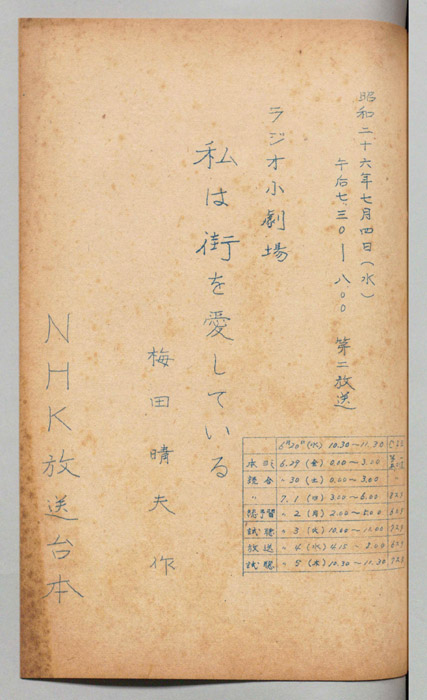 昭和二十六年七月四日(水)
午后七、三〇ー八、〇〇 第二放送
ラジオ小劇場
私は街を愛している
梅田晴夫 作
NHK放送台本
(水) 10.30～11.30
6.29 (金) 0.00～3.00
〃 30 (土) 0.00～3.00
〃 7.1 (日) 3.00～6.00
〃 2 (月) 2.00～5.00
試聴 〃 3 (火) 10.00～11.00
放送 〃 4 (水)
試聴 〃 5 (木) 10.30～11.30